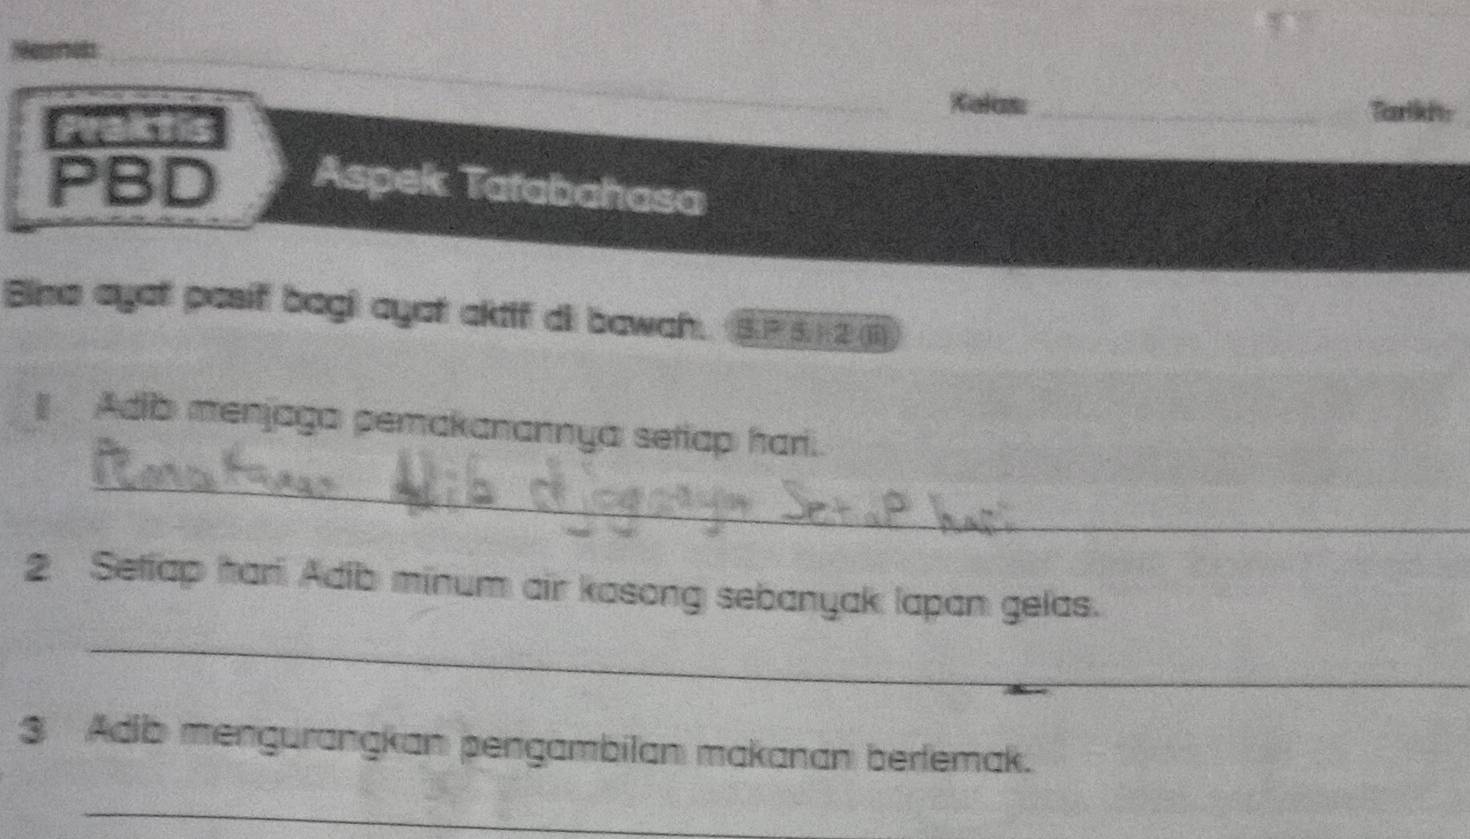 Nama:
Kelas:
Tarikh:
Praktis
PBD
Aspek Tatabahasa
Bina ayat pasif bagi ayat aktif di bawah. S.P 5.1.2 (ii)
1 Adib menjaga pemakanannya setiap hari.
Pemakanan Adib dijaganya Setiap hari
2 Setiap hari Adib minum air kosong sebanyak lapan gelas.
3 Adib mengurangkan pengambilan makanan berlemak.